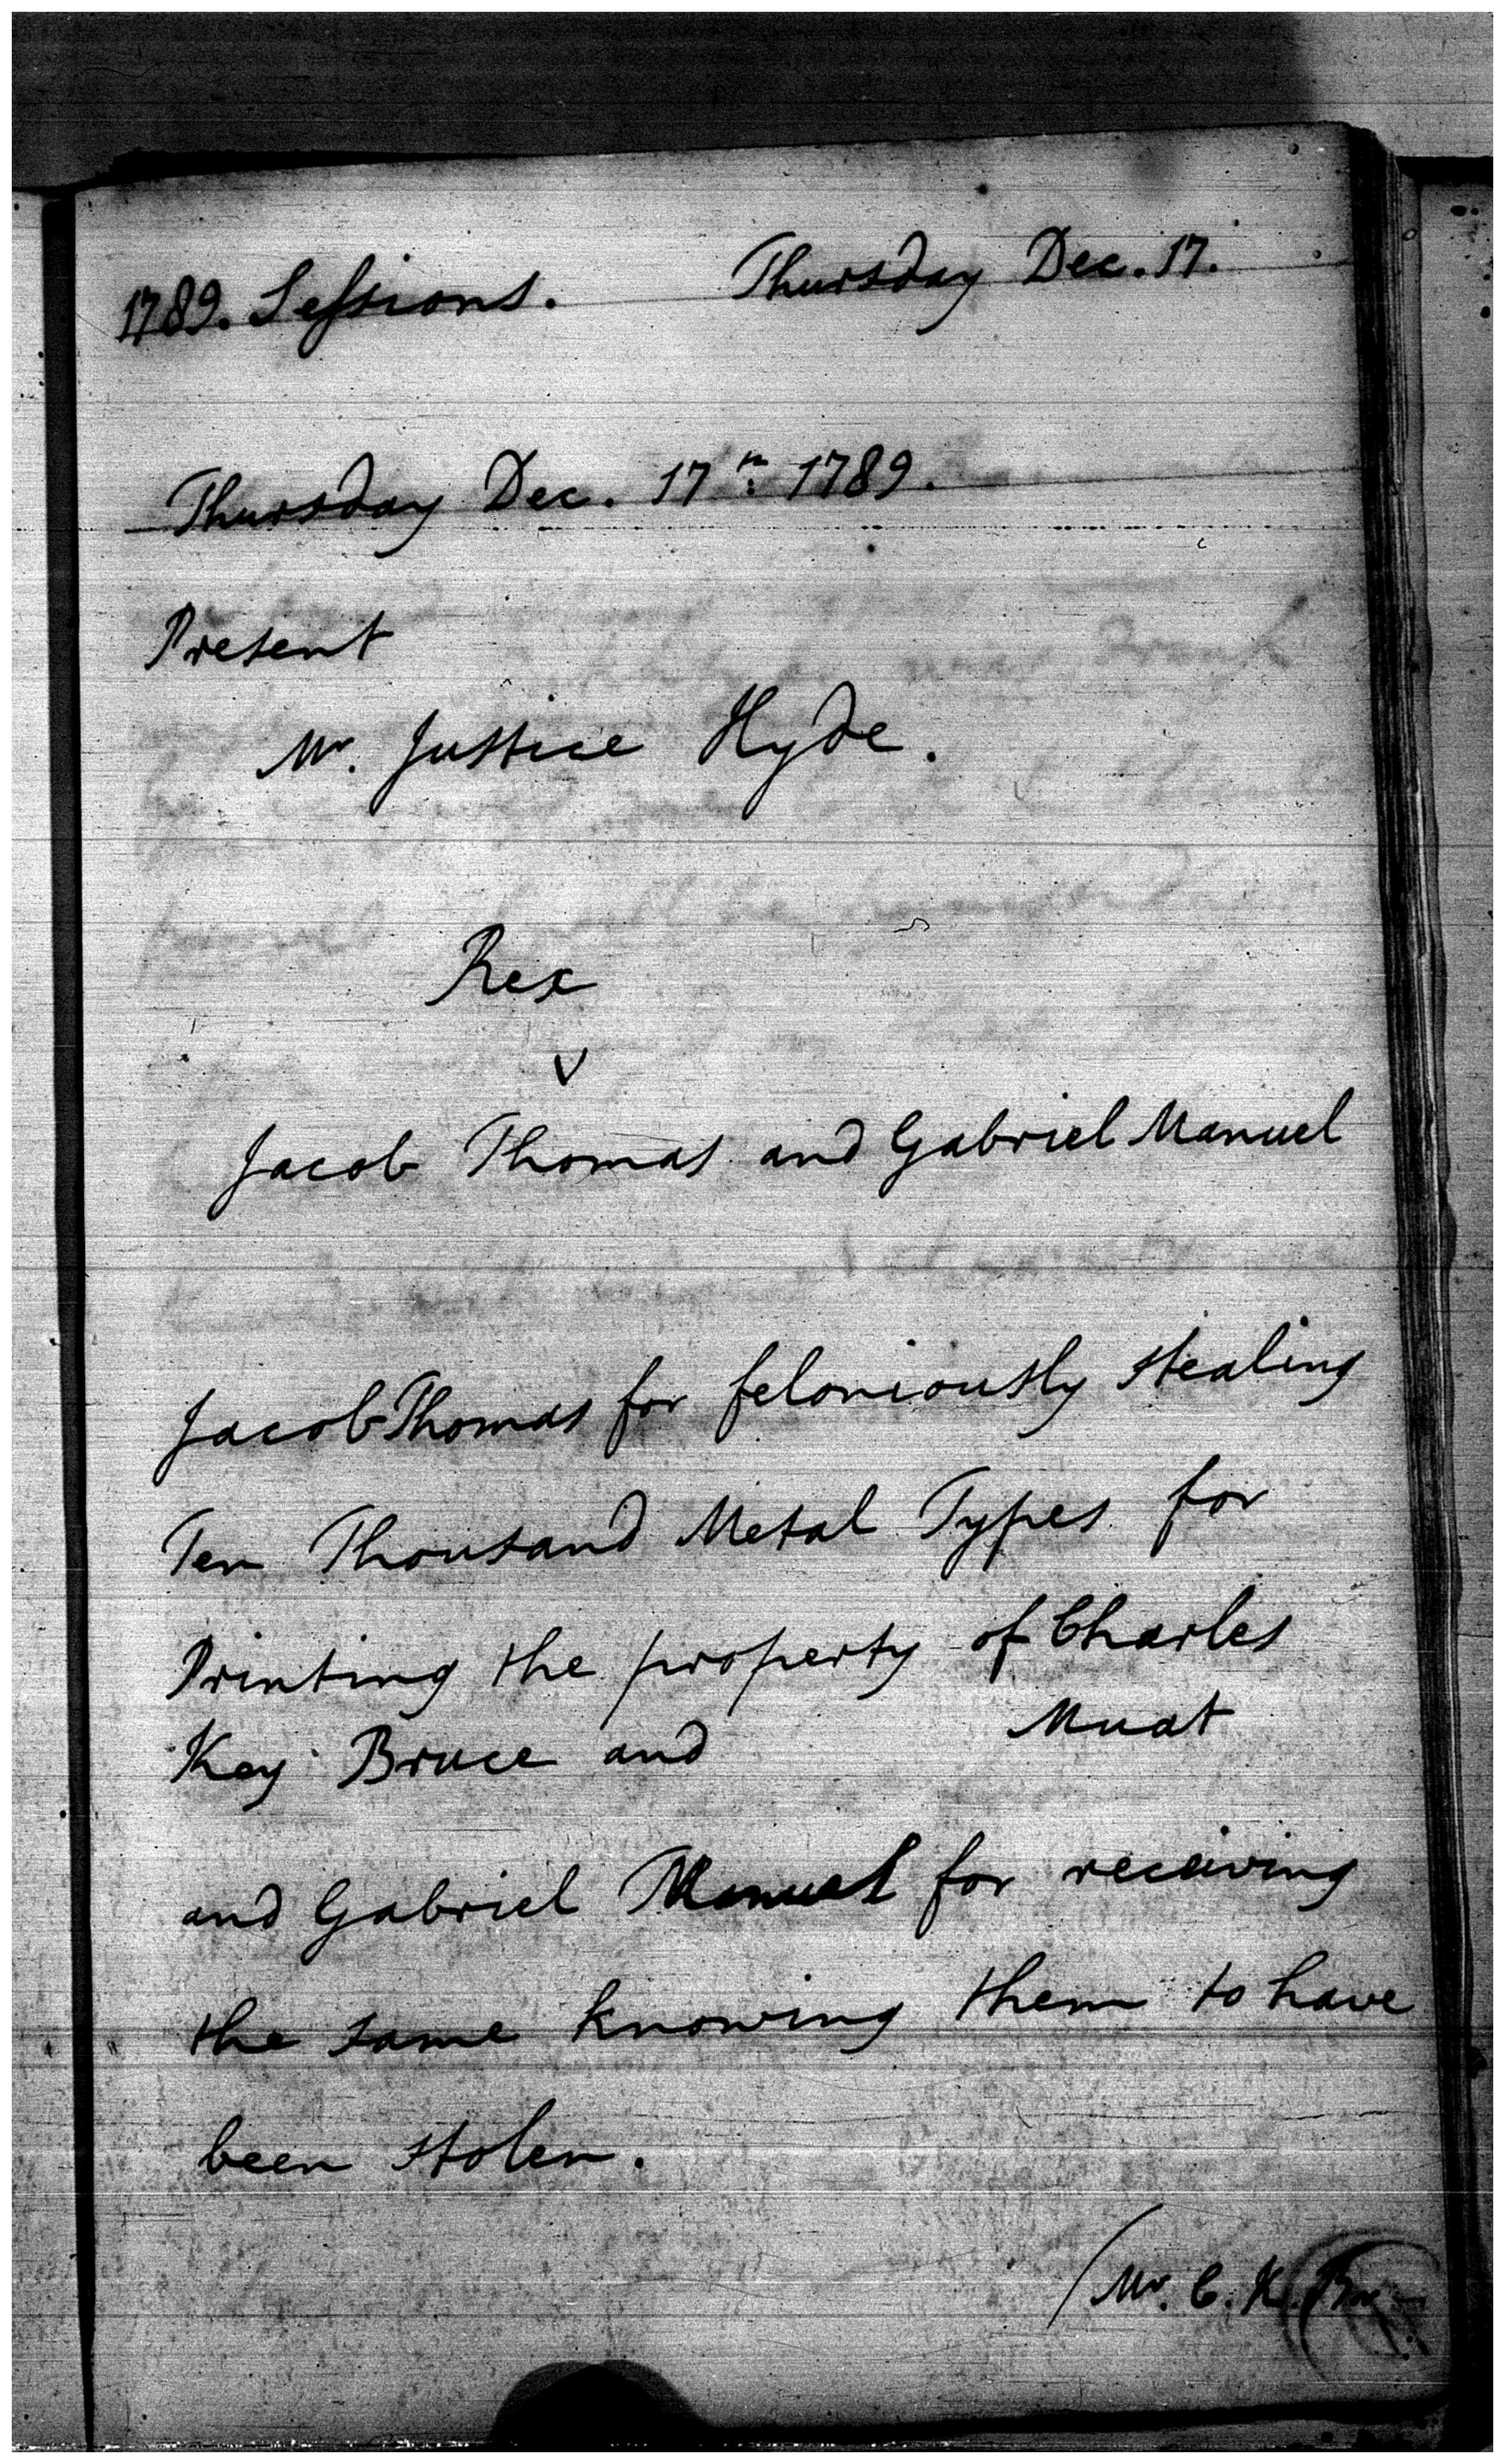 1789. Sessions. Thursday Dec. 17.
Thursday Dec. 17th 1789.
Present
Mr. Justice Hyde.
Rex
v
Jacob Thomas and Gabriel Manuel
Jacob Thomas for feloniously stealing
Ten Thousand Metal Types for
Printing the property of Charles
Key Bruce and Muat
and Gabriel Manuel for receiving
the same knowing them to have
been stolen.
(Mr. C. K.